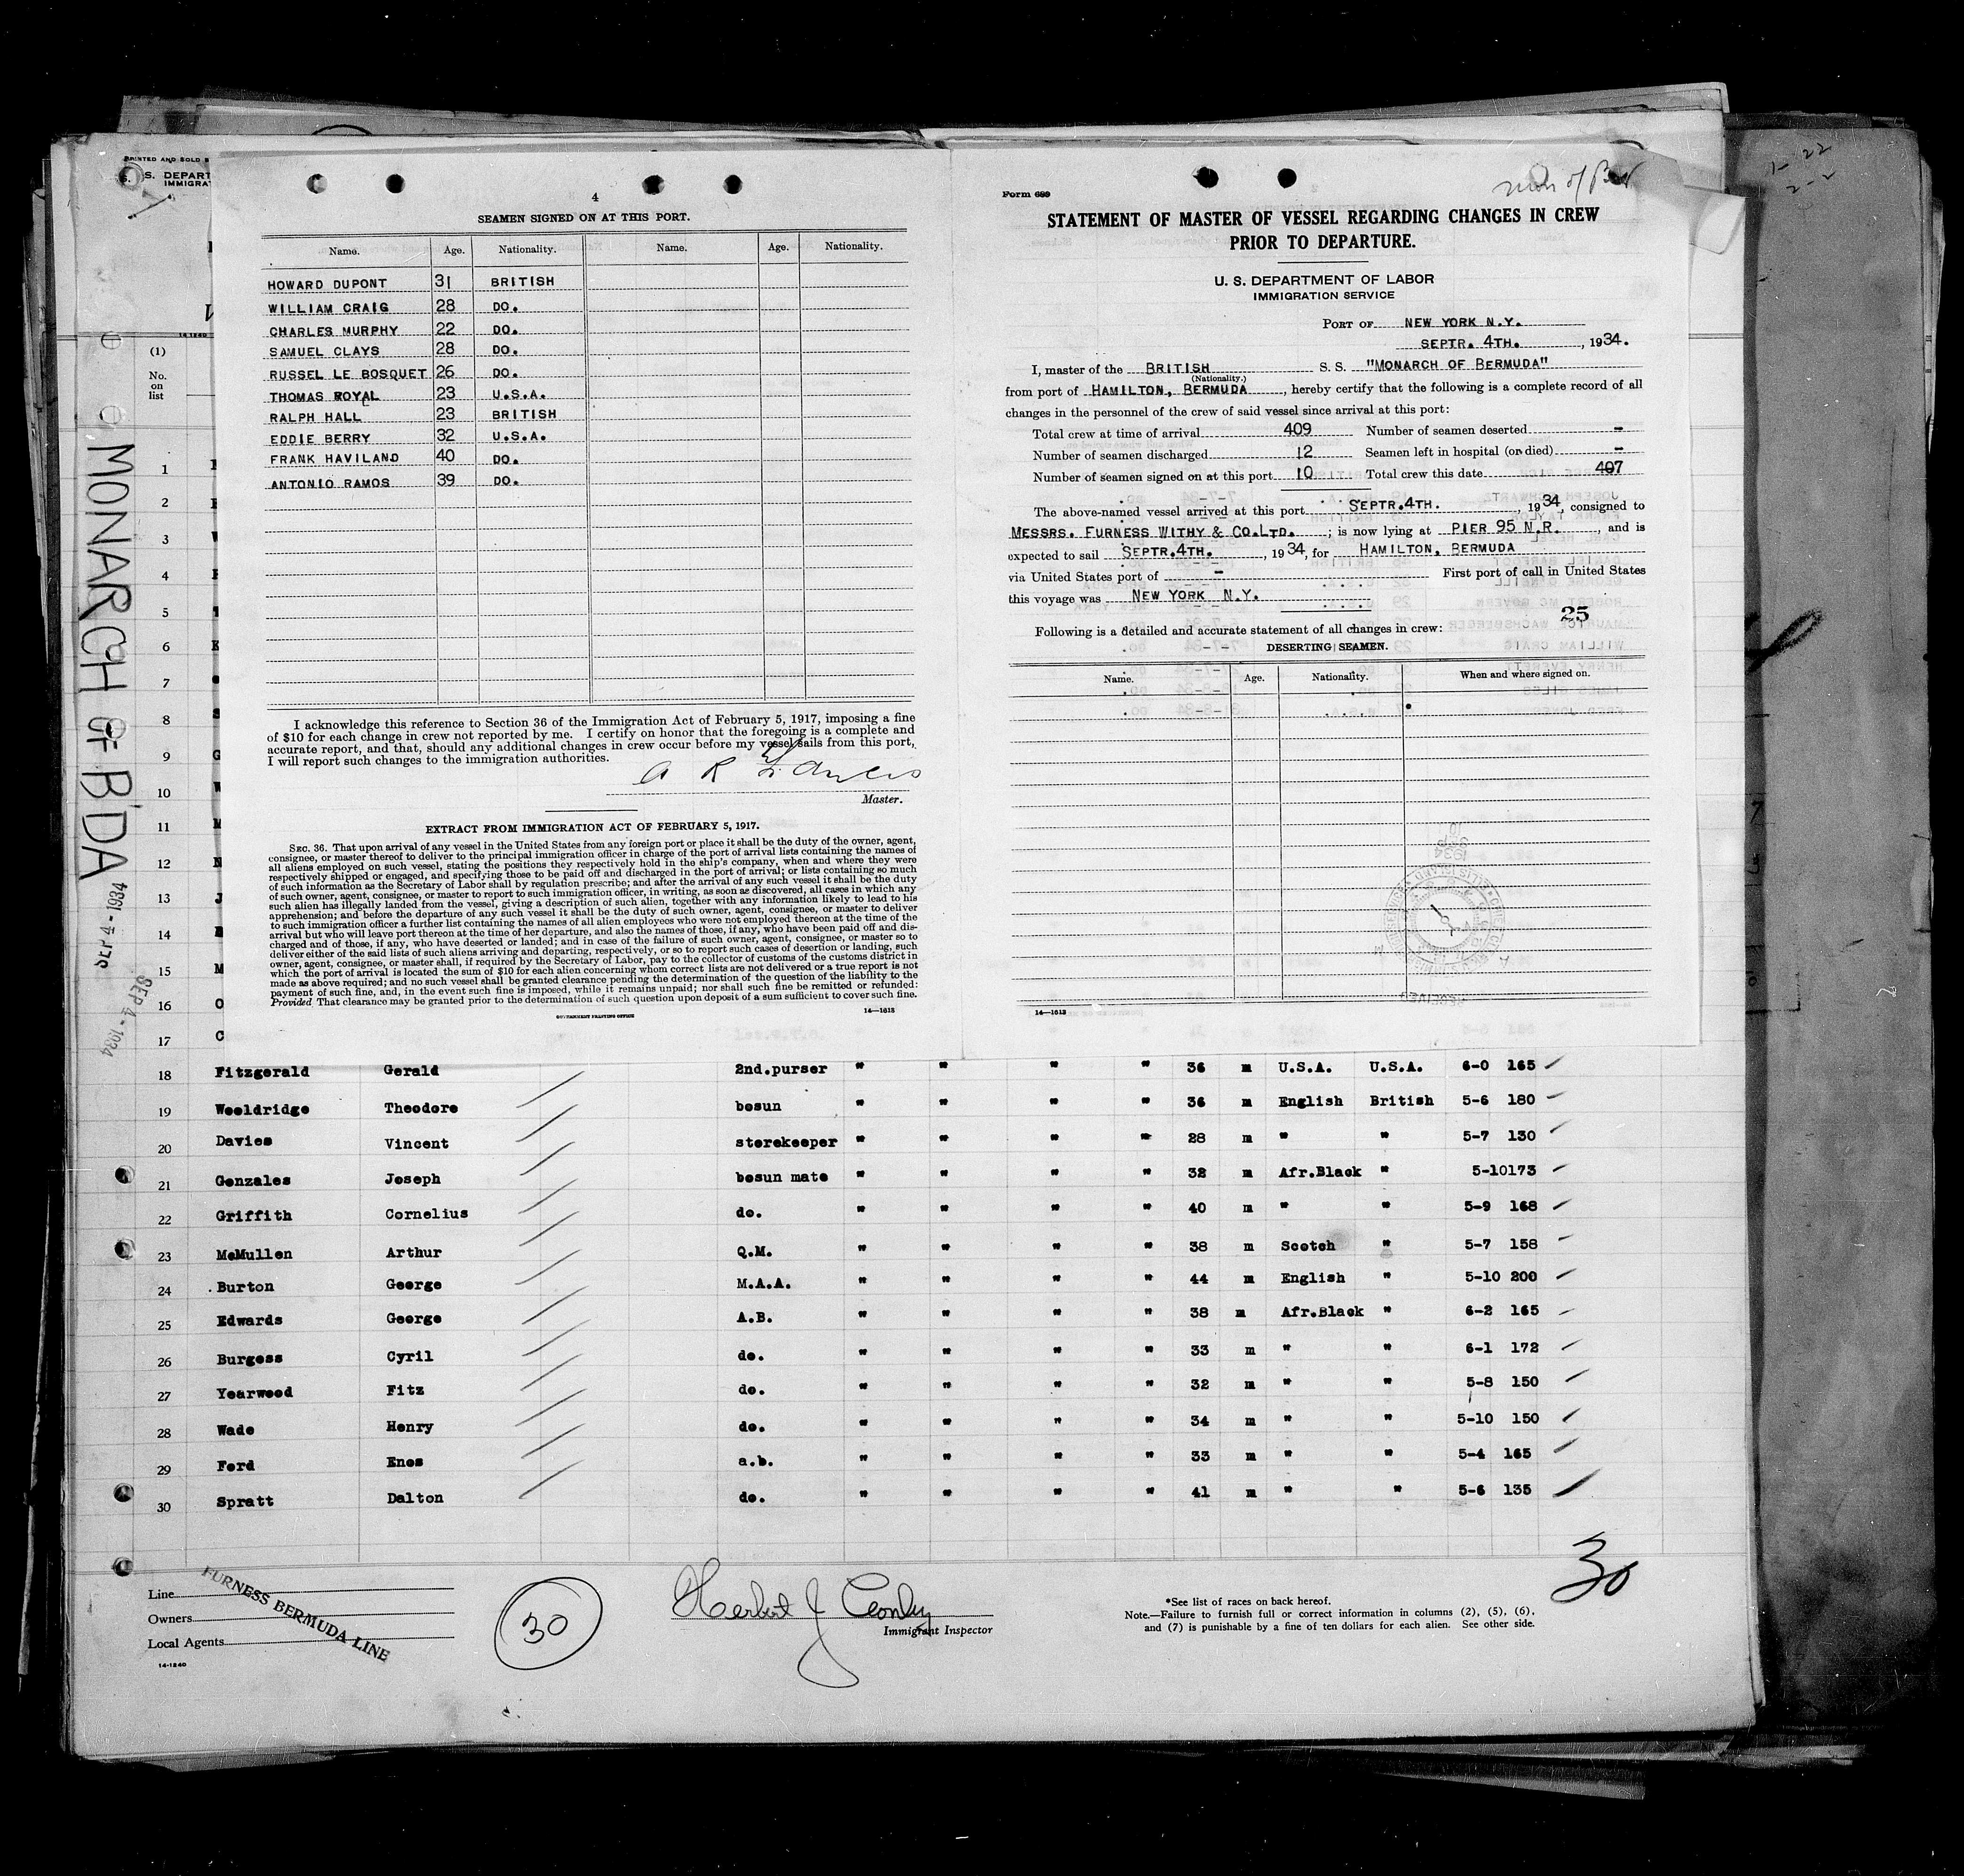 PRINTED AND SOLD B
S. DEPART
IMMIGRA
14-1240
(1)
No.
on
list
MONARCH OF B'DA
SEP 4 - 1934
SEP 4 - 1934
4
SEAMEN SIGNED ON AT THIS PORT.
Name. Age. Nationality. Name. Age. Nationality.
HOWARD DUPONT 31 BRITISH
WILLIAM CRAIG 28 DO.
CHARLES MURPHY 22 DO.
SAMUEL CLAYS 28 DO.
RUSSEL LE BOSQUET 26 DO.
THOMAS ROYAL 23 U.S.A.
RALPH HALL 23 BRITISH
EDDIE BERRY 32 U.S.A.
FRANK HAVILAND 40 DO.
ANTONIO RAMOS 39 DO.
I acknowledge this reference to Section 36 of the Immigration Act of February 5, 1917, imposing a fine
of $10 for each change in crew not reported by me. I certify on honor that the foregoing is a complete and
accurate report, and that, should any additional changes in crew occur before my vessel sails from this port,
I will report such changes to the immigration authorities.
A R Francis
Master.
EXTRACT FROM IMMIGRATION ACT OF FEBRUARY 5, 1917.
SEC. 36. That upon arrival of any vessel in the United States from any foreign port or place it shall be the duty of the owner, agent,
consignee, or master thereof to deliver to the principal immigration officer in charge of the port of arrival lists containing the names of
all aliens employed on such vessel, stating the positions they respectively hold in the ship's company, when and where they were
respectively shipped or engaged, and specifying those to be paid off and discharged in the port of arrival; or lists containing so much
of such information as the Secretary of Labor shall by regulation prescribe; and after the arrival of any such vessel it shall be the duty
of such owner, agent, consignee, or master to report to such immigration officer, in writing, as soon as discovered, all cases in which any
such alien has illegally landed from the vessel, giving a description of such alien, together with any information likely to lead to his
apprehension; and before the departure of any such vessel it shall be the duty of such owner, agent, consignee, or master to deliver
to such immigration officer a further list containing the names of all alien employees who were not employed thereon at the time of the
arrival but who will leave port thereon at the time of her departure, and also the names of those, if any, who have been paid off and dis-
charged and of those, if any, who have deserted or landed; and in case of the failure of such owner, agent, consignee, or master so to
deliver either of the said lists of such aliens arriving and departing, respectively, or so to report such cases of desertion or landing, such
owner, agent, consignee, or master shall, if required by the Secretary of Labor, pay to the collector of customs of the customs district in
which the port of arrival is located the sum of $10 for each alien concerning whom correct lists are not delivered or a true report is not
made as above required; and no such vessel shall be granted clearance pending the determination of the question of the liability to the
payment of such fine, and, in the event such fine is imposed, while it remains unpaid; nor shall such fine be remitted or refunded:
Provided That clearance may be granted prior to the determination of such question upon deposit of a sum sufficient to cover such fine.
GOVERNMENT PRINTING OFFICE 14—1613
Form 689
Mon of Ber
STATEMENT OF MASTER OF VESSEL REGARDING CHANGES IN CREW
PRIOR TO DEPARTURE.
U. S. DEPARTMENT OF LABOR
IMMIGRATION SERVICE
PORT OF NEW YORK N.Y.
SEPTR. 4TH. , 1934.
I, master of the BRITISH S. S. "MONARCH OF BERMUDA"
(Nationality.)
from port of HAMILTON, BERMUDA , hereby certify that the following is a complete record of all
changes in the personnel of the crew of said vessel since arrival at this port:
Total crew at time of arrival 409 Number of seamen deserted –
Number of seamen discharged 12 Seamen left in hospital (or died) –
Number of seamen signed on at this port 10 Total crew this date 407
The above-named vessel arrived at this port SEPTR.4TH. , 1934, consigned to
MESSRS. FURNESS WITHY & CO.LTD. ; is now lying at PIER 95 N.R. , and is
expected to sail SEPTR.4TH. , 1934, for HAMILTON, BERMUDA
via United States port of – First port of call in United States
this voyage was NEW YORK N.Y.
25
Following is a detailed and accurate statement of all changes in crew:
DESERTING SEAMEN.
Name. Age. Nationality. When and where signed on.
14—1613
1
2
3
4
5
6
7
8
9
10
11
12
13
14
15
16
17
18 Fitzgerald Gerald 2nd.purser " " " " 36 m U.S.A. U.S.A. 6-0 165
19 Wooldridge Theodore bosun " " " " 36 m English British 5-6 180
20 Davies Vincent storekeeper " " " " 28 m " " 5-7 130
21 Gonzales Joseph bosun mate " " " " 32 m Afr.Black " 5-10 173
22 Griffith Cornelius do. " " " " 40 m " " 5-9 168
23 McMullen Arthur Q.M. " " " " 38 m Scotch " 5-7 158
24 Burton George M.A.A. " " " " 44 m English " 5-10 200
25 Edwards George A.B. " " " " 38 m Afr.Black " 6-2 165
26 Burgess Cyril do. " " " " 33 m " " 6-1 172
27 Yearwood Fitz do. " " " " 32 m " " 5-8 150
28 Wade Henry do. " " " " 34 m " " 5-10 150
29 Ford Enos a.b. " " " " 33 m " " 5-4 165
30 Spratt Dalton do. " " " " 41 m " " 5-6 135
30
Line
Owners
Local Agents
FURNESS BERMUDA LINE
14-1240
30
Herbert J Conley
Immigrant Inspector
*See list of races on back hereof.
Note.—Failure to furnish full or correct information in columns (2), (5), (6),
and (7) is punishable by a fine of ten dollars for each alien. See other side.
1-22
2-2